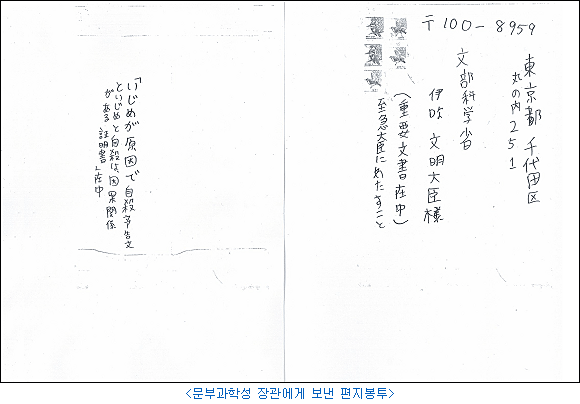 〒100-8959
東京都 千代田区
丸の内251
文部科学省
伊吹 文明大臣様
(重要文書在中)
至急大臣にわたすこと
「いじめが原因で自殺予告文
といじめと自殺は、因果関係
がある 証明書」在中
<문부과학성 장관에게 보낸 편지봉투>